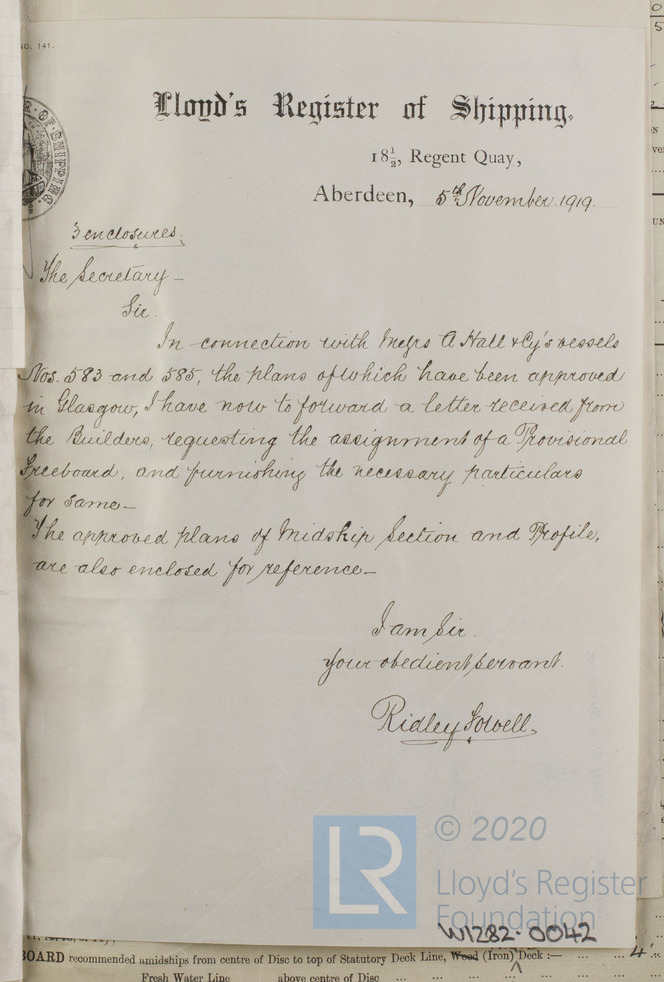 NO. 141.
OF SHIPPING
Lloyd's Register of Shipping,
18½, Regent Quay,
Aberdeen, 5th November 1919.
3 enclosures.
The Secretary –
Sir.
In connection with Messrs A Hall & Cy's vessels
Nos. 583 and 585, the plans of which have been approved
in Glasgow, I have now to forward a letter received from
the Builders, requesting the assignment of a Provisional
Freeboard, and furnishing the necessary particulars
for same –
The approved plans of Midship Section and Profile,
are also enclosed for reference –
I am Sir.
your obedient servant.
Ridley
© 2020
LR
Lloyd's Register
Foundation
W1282-0042
BOARD recommended amidships from centre of Disc to top of Statutory Deck Line, Wood (Iron) Deck :— ... ... 4
Fresh Water Line above centre of Disc ... ... ...